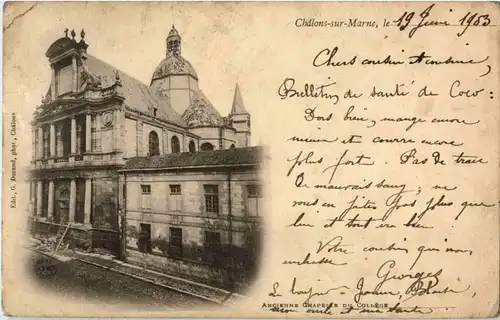 Châlons-sur-Marne, le 19 Juin 1903
Chers cousin et cousine,
Bulletin de santé de Coco :
Dors bien, mange encore
mieux et courre encore
plus fort. Pas de trace
de mauvais sang, ne
vous en faites pas plus que
lui et tout ira bien.
Votre cousin qui vous
embrasse
Georges
Le bonjour à
mon oncle et ma tante.
Edit. G. Durand, phot., Châlons
Ancienne Chapelle du Collège